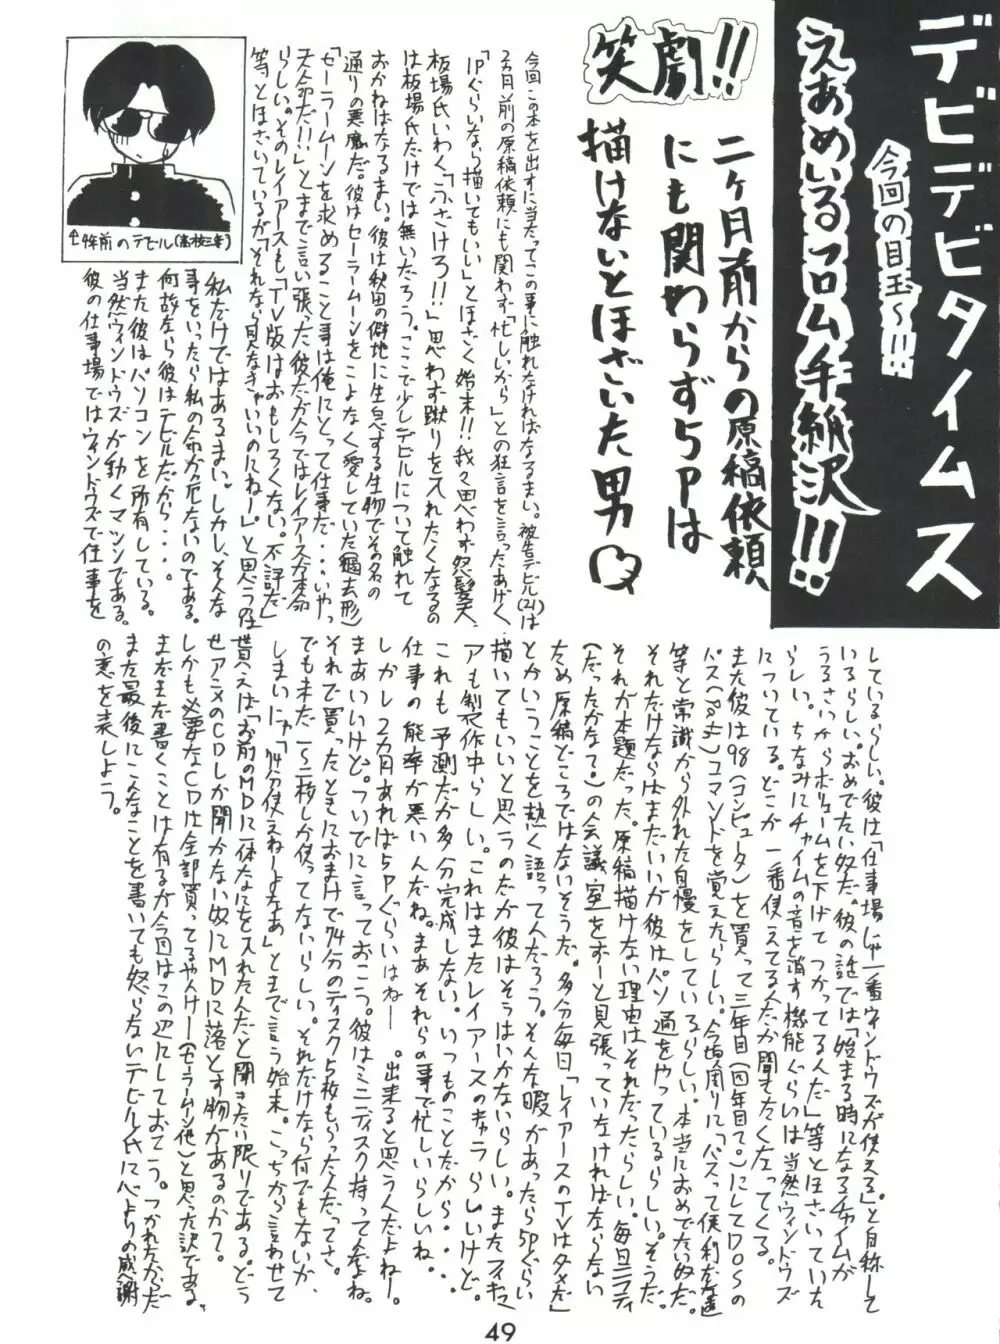 デビデビタイムス
今回の目玉〜!!!
えあめいるフロム千紙沢!!!
笑劇!!
二ヶ月前からの原稿依頼
にも関わらず5Pは
描けないとほざいた男
今回この本を出すに当たってこの事に触れなければなるまい。被告デビル(21)は
2ヵ月前の原稿依頼にも関わず「忙しいから」との狂言を言ったあげく、
「1Pぐらいなら描いてもいい」とほざく始末!!我々思わず怒髪天、
板場氏いわく「ふざけろ!!」思わず蹴りを入れたくなるの
は板場氏だけでは無いだろう。ここで少しデビルについて触れて
おかねばなるまい。彼は秋田の僻地に生息する生物でその名の
通りの悪魔だ。彼はセーラームーンをこよなく愛していた(過去形)
「セーラームーンを求めること事は俺にとって仕事だ・・・いやっ
天命だ!!」とまで言い張った彼だが今ではレイアースが本命
らしい。そのレイアースも「TV版はおもしろくない。不評だ」
等とほざいているが「それなら見なきゃいいのにねー」と思うのは
↑4年前のデビル(高校三年)
私だけではあるまい。しかし、そんな
事をいったら私の命が危ないのである。
何故なら彼はデビルだから・・・。
また彼はパソコンを所有している。
当然ウィンドウズが動くマシンである。
彼の仕事場ではウィンドウズで仕事を
しているらしい。彼は「仕事場じゃ一番ウィンドウズが使える」と自称して
いるらしい。おめでたい奴だ。彼の話では「始まる時になるチャイムが
うるさいからボリュームを下げてつかってるんだ」等とほざいていた
らしい。ちなみにチャイムの音を消す機能ぐらいは当然ウィンドウズ
についている。どこが一番使えてる人だか聞きたくなってくる。
また彼は98(コンピュータ)を買って三年目(四年目て。)にしてDOSの
パス(Path)コマンドを覚えたらしい。今頃周りに「パスって便利だな」
等と常識から外れた自慢をしているらしい。本当におめでたい奴だ。
それだけならばまだいいが彼はパソ通をやっているらしい。そうだ。
それが本題だった。原稿描けない理由はそれだったらしい。毎日ニフティ
(だったかなて。)の会議室をずーと見張っていなければならない
ため原稿どころではないそうだ。多分毎日「レイアースのTVはダメだ」
とかいうことを熱く語ってんだろう。そんな暇があったら5Pぐらい
描いてもいいと思うのだが彼はそうはいかないらしい。またフィギュ
アも製作中らしい。これはまたレイアースのキャラらしいけど。
これも予測だが多分完成しない。いつものことだから・・・
仕事の能率が悪いんだね。まあそれらの事で忙しいらしいね。
しかし2カ月あれば5Pぐらいはねー。出来ると思うんだよねー。
まあいいけど。ついでに言っておこう。彼はミニディスク持ってんだよね。
それで買ったときにおまけで74分のディスク5枚もらったんだってさ。
でも未だ1〜2枚しか使ってないらしい。それだけなら何でもないが、
しまいにゃ「74分使えねーよなあ」とまで言う始末。こっちから言わせて
貰えば「お前のMDに一体なにを入れたんだ」と聞きたい限りである。どう
せアニメのCDしか聞かない奴にMDに落とす物があるのかて。
しかも必要なCDは全部買ってるやんけー(セーラームーン他)と思った訳である。
まだまだ書くことは有るが今回はこの辺にしておこう。つかれたから。だ
また最後にこんなことを書いても怒らないデビル氏に心よりの感謝
の意を表しよう。
49